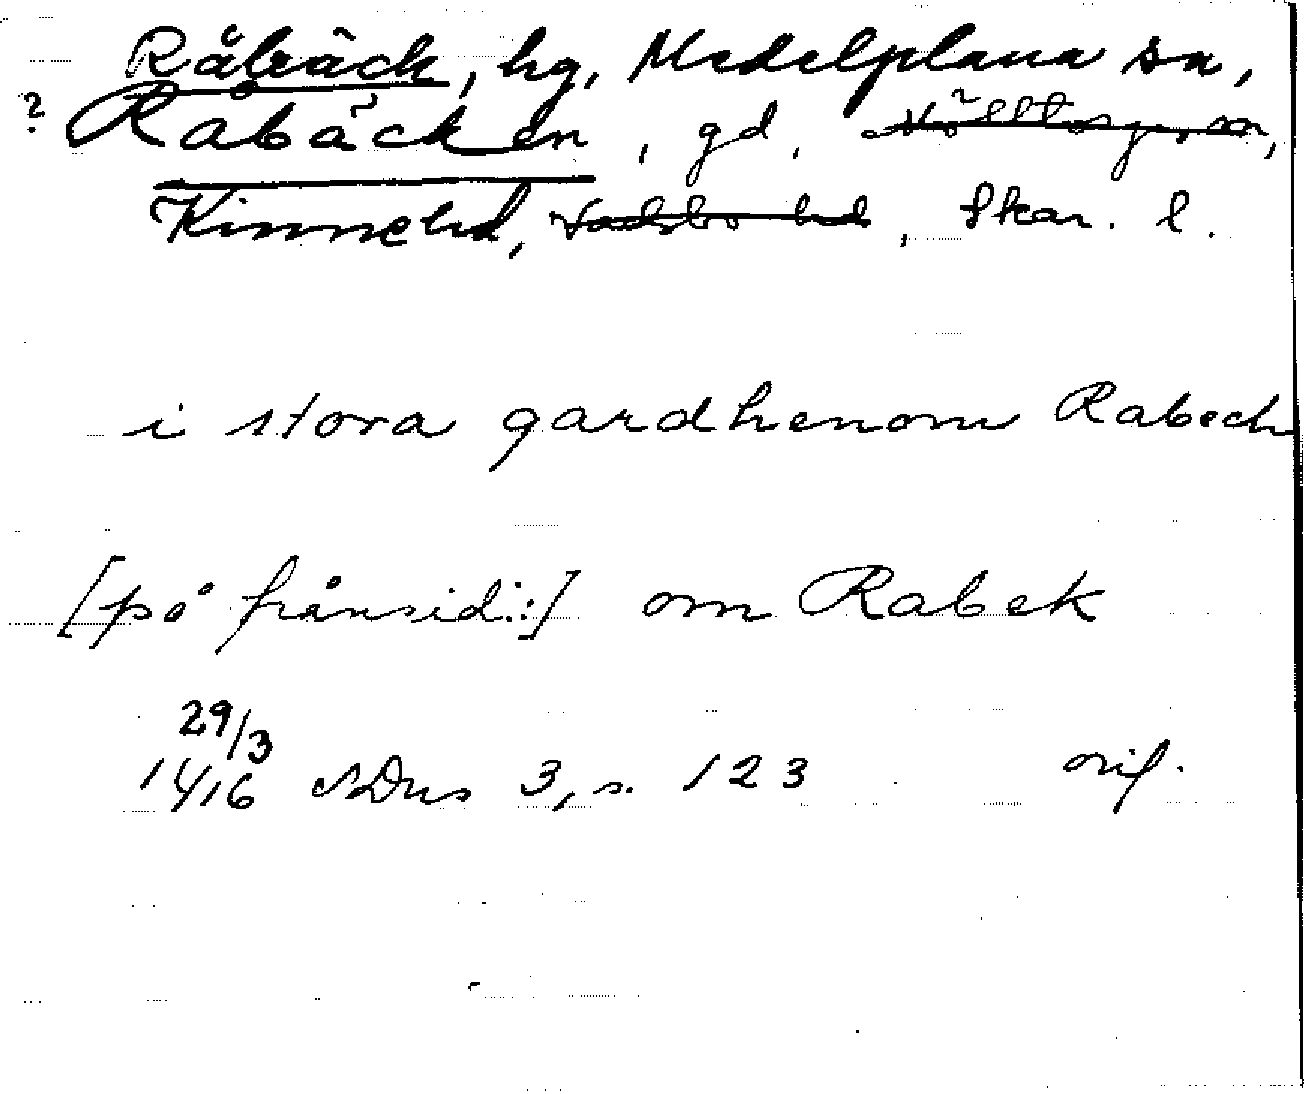 Råbäck, hg, Medelplana sn,
? Råbäcken, gd, Mölltorps sn,
Kinne hd, Vadsbo hd, Skar. l.
i stora gardhenom Rabech
[på frånsid.:] om Rabek
29/3
1416 SDns 3, s. 123 orig.